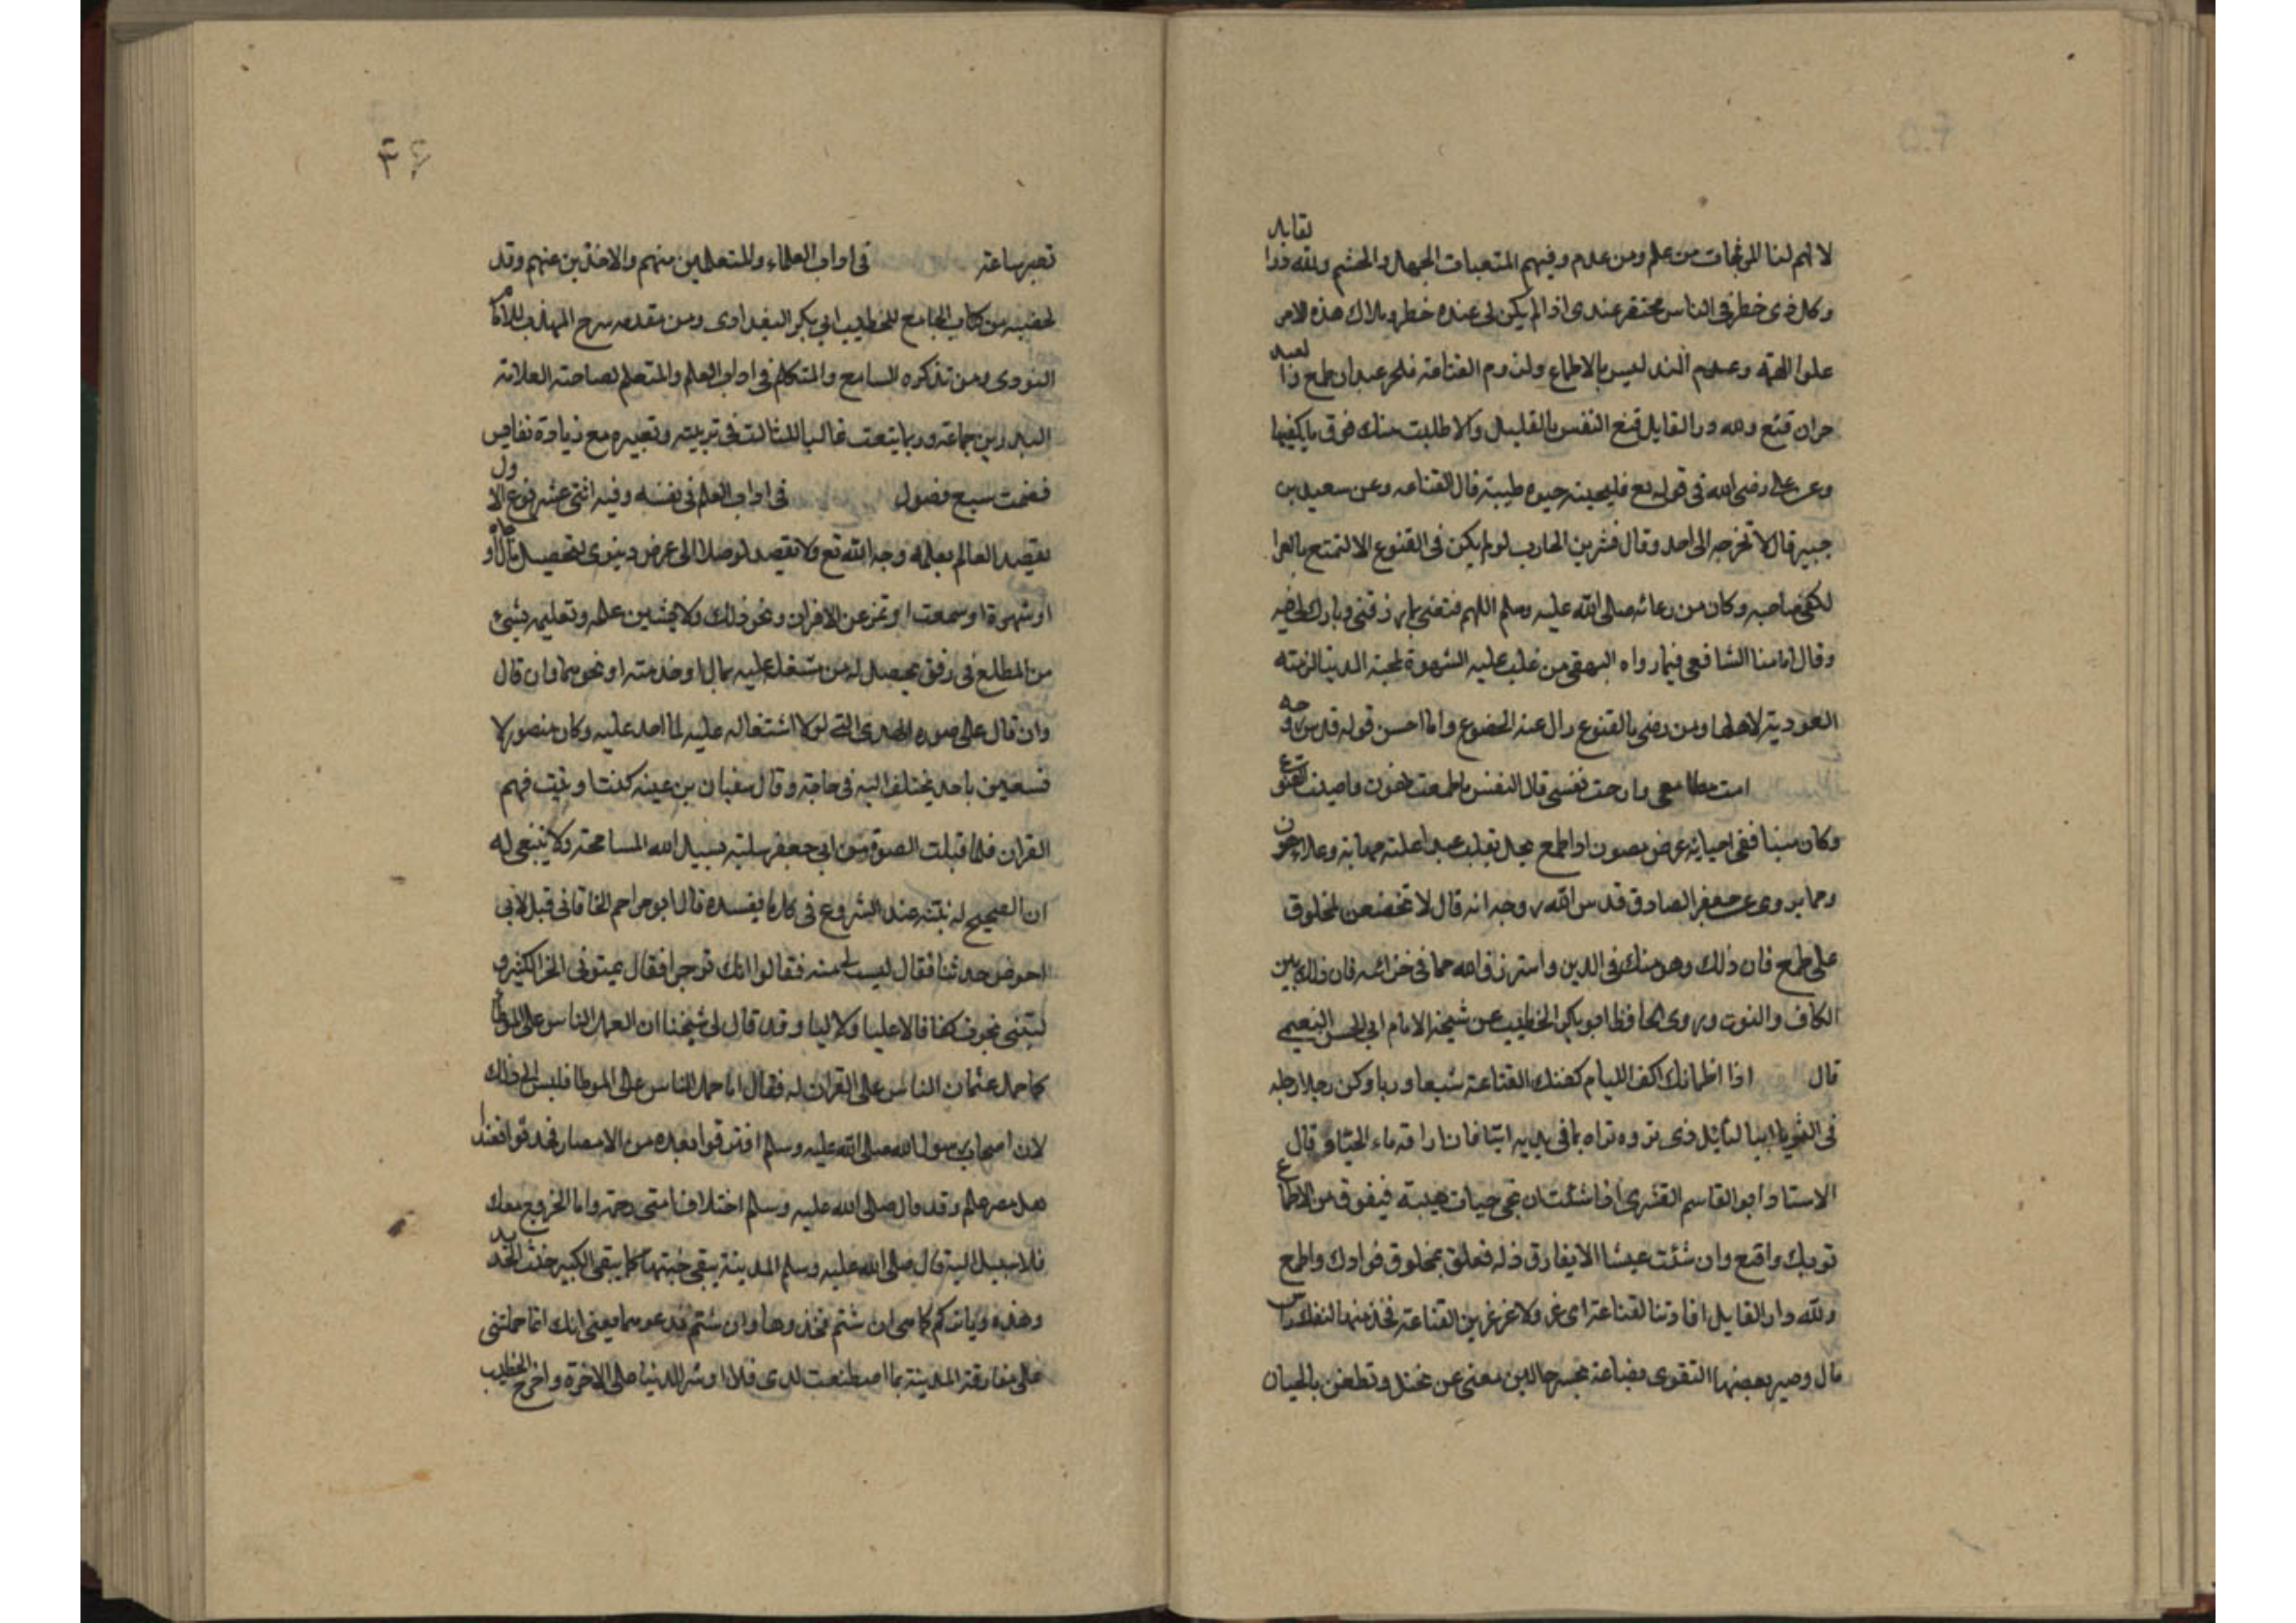 وكل ذي خطر في الناس محتقر عندي اذا لم يكن لي عنده خطر وملاك هذه الامر
علو الهمة وعدم الدليس بالاطماع ولزوم القناعة فلحر عبد ان طمع ذا لعبد
حران قنع ولله در القايل قنع النفس بالقليل والا طلبت منك فوق ما يكفيها
وعن علي رضي الله في قوله تع فلنحيينه حيوه طيبة قال القناعه وعن سعيد بن
جبير قال لا تخرجه الى احد وقال بشر بن الحارب لو لم يكن في القنوع الا التمتع بالعزا
لكفى صاحبه وكان من دعائه صلى الله عليه وسلم اللهم قنعني بما رزقتني وبارك لي فيه
وقال امامنا الشافعي فيما رواه البيهقي من غلب عليه الشهوة لمحبة الدنيا لزمته
العبودية لاهلها ومن رضي بالقنوع زال عنه الخضوع واما احسن قوله قدس روحه
امت مطامعي وارحت نفسي فان النفس ما طمعت تهون واحييت القنوع
وكان ميتا ففي احيائه عرض مصون اذا طمع يحل بقلب عبد اعلته مهابة وعلاه هون
ومما يروى عن جعفر الصادق قدس الله روحه انه قال لا تخضعن لمخلوق
على طمع فان ذلك وهن منك في الدين واسترزق الله مما في خزائنه فان ذلك بين
الكاف والنون وروى الحافظ ابو بكر الخطيب عن شيخه الامام ابي الحسن النعيمي
قال اذا اظمأتك اكف الليام كفتك القناعة شبعا وريا وكن رجلا رجله
في الثرى ابيا لنائل ذي ثروه تراه بما في يديه ابيا فان اراقة ماء الحياة وقال
الاستاد ابو القاسم القشيري اذا شئت ان تحي حيات هنية فينفوق من الاطماع
ثوبك واقنع وان شئت عيشا لا يفارق ذله فعلق بمخلوق فوادك واطمع
ولله در القايل افادتنا القناعة اي عز ولا عز اعز من القناعة فخذ منها لنفسك راس
مال وصير بعضها التقوى بضاعة
تعبير ساعة في اداب العلماء والمتعلمين منهم والاخذين عنهم وقد
لخصته من كتاب الجامع للخطيب ابي بكر البغدادى ومن مقدمه شرح المهذب للامام
النووى ومن تذكره السامع والمتكلم في اداب العالم والمتعلم لصاحبه العلامة
البدر بن جماعة وربما يتعت غالبا للثالث في ترتيبه وتعبيره مع زيادة نفايس
فضمت سبع فصول في اداب العلم في نفسه وفيه اثني عشر نوع الاول
يقصد العالم بعلمه وجه الله تع ولا يقصد توصلا الى غرض دنيوى لتحصيل مال او جاه
او شهرة او سمعت او تميز عن الاقران ونحو ذلك ولا يشين علمه وتعليمه بشيء
من المطلع في رفق يحصل له من مشتغل عليه بمال او خدمته او نحوهما وان قال
وان قال على صوره الهدى التي لولا اشتغاله عليه لما اهد عليه وكان منصور لا
يستعين باحد يختلف اليه في حاجة وقال سفيان بن عينه كنت اوتيت فهم
القران فلما قبلت الصرة من ابي جعفر سلبته نسيل الله المسامحة ولا ينبغي له
ان الصحيح له نيته عند الشروع في كل ما يفسده قال ابو مزاحم الخاقاني قيل لابي
احوص حدثنا فقال ليست لي نيه فقالوا انك توجر فقال يمنوني الخير الكثير و
ليتني نجوت كفافا لا عليا ولا ليا وقد قال لي شيخنا ان العمل الناس على الموطا
كما حمل عثمان الناس على القران له فقال اما حمل الناس على الموطا فليس الى ذلك
لان اصحاب رسول الله صلى الله عليه وسلم افترقوا بعده من الامصار فحدثوا فعند
اهل مصر علم وقد قال صلى الله عليه وسلم اختلاف امتي رحمة واما الخروج معك
فلا سبيل اليه قال صلى الله عليه وسلم المدينة ينفي خبثها كما ينفي الكير خبث الحديد
وهذه دنياكم كما هي ان شئتم فخذوها وان شئتم فدعوها يعني انك انما حملتني
على مفارقة المدينة بما اصطنعت لدى فلا اوثر الدنيا على الاخرة واخرج الخطيب